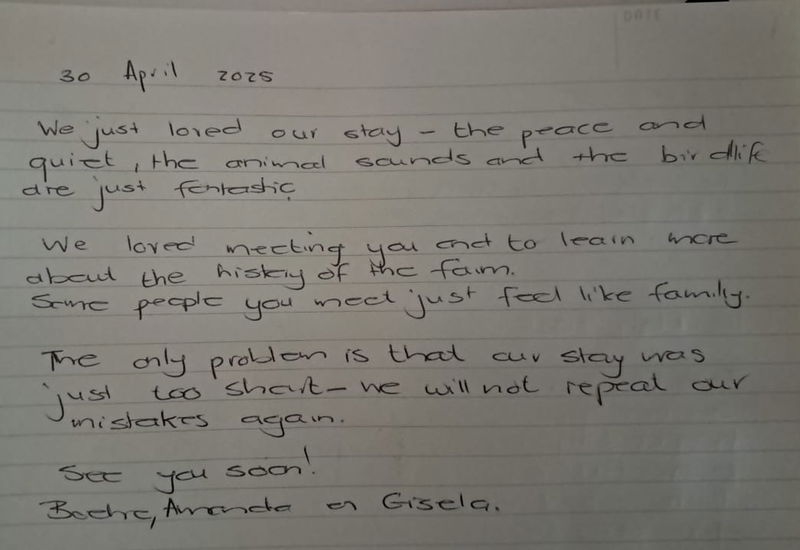 DATE
30 April 2025
We just loved our stay – the peace and
quiet, the animal sounds and the birdlife
are just fantastic
We loved meeting you and to learn more
about the history of the farm.
Some people you meet just feel like family.
The only problem is that our stay was
just too short – we will not repeat our
mistakes again.
See you soon!
Amanda en Gisela.